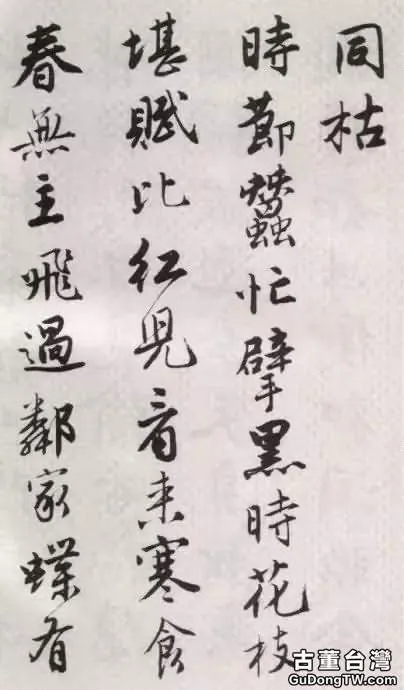 同枯
時節蠶忙擘黑時花枝
堪賦比紅兒看來寒食
春無主飛過鄰家蝶有
古董台灣
GuDongTW.com